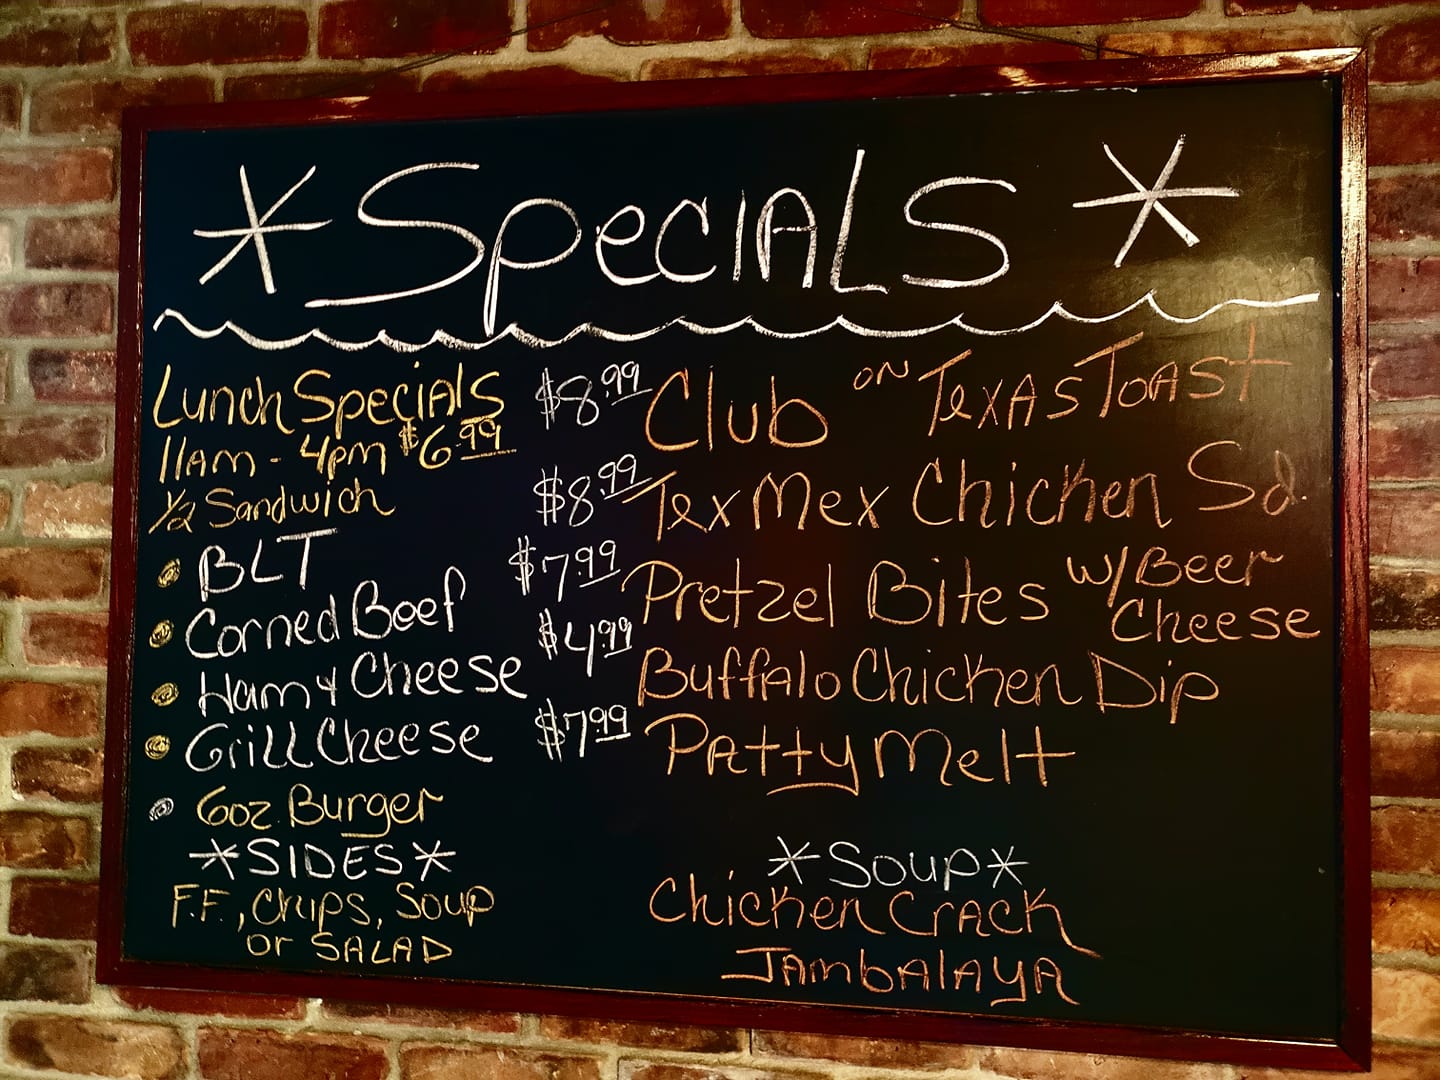 *SpecIALS*
Lunch SpecialS
11AM - 4pm $6.99
1/2 Sandwich
BLT
Corned Beef
Ham & Cheese
Grill Cheese
6oz. Burger
*SIDES*
F.F., Chips, Soup
or SALAD
$8.99 Club ON TexAs ToAst
$8.99 Tex Mex Chicken Sd.
$7.99 Pretzel Bites w/ Beer
Cheese
$4.99 Buffalo Chicken Dip
$7.99 Patty Melt
*Soup*
Chicken Crack
Jambalaya